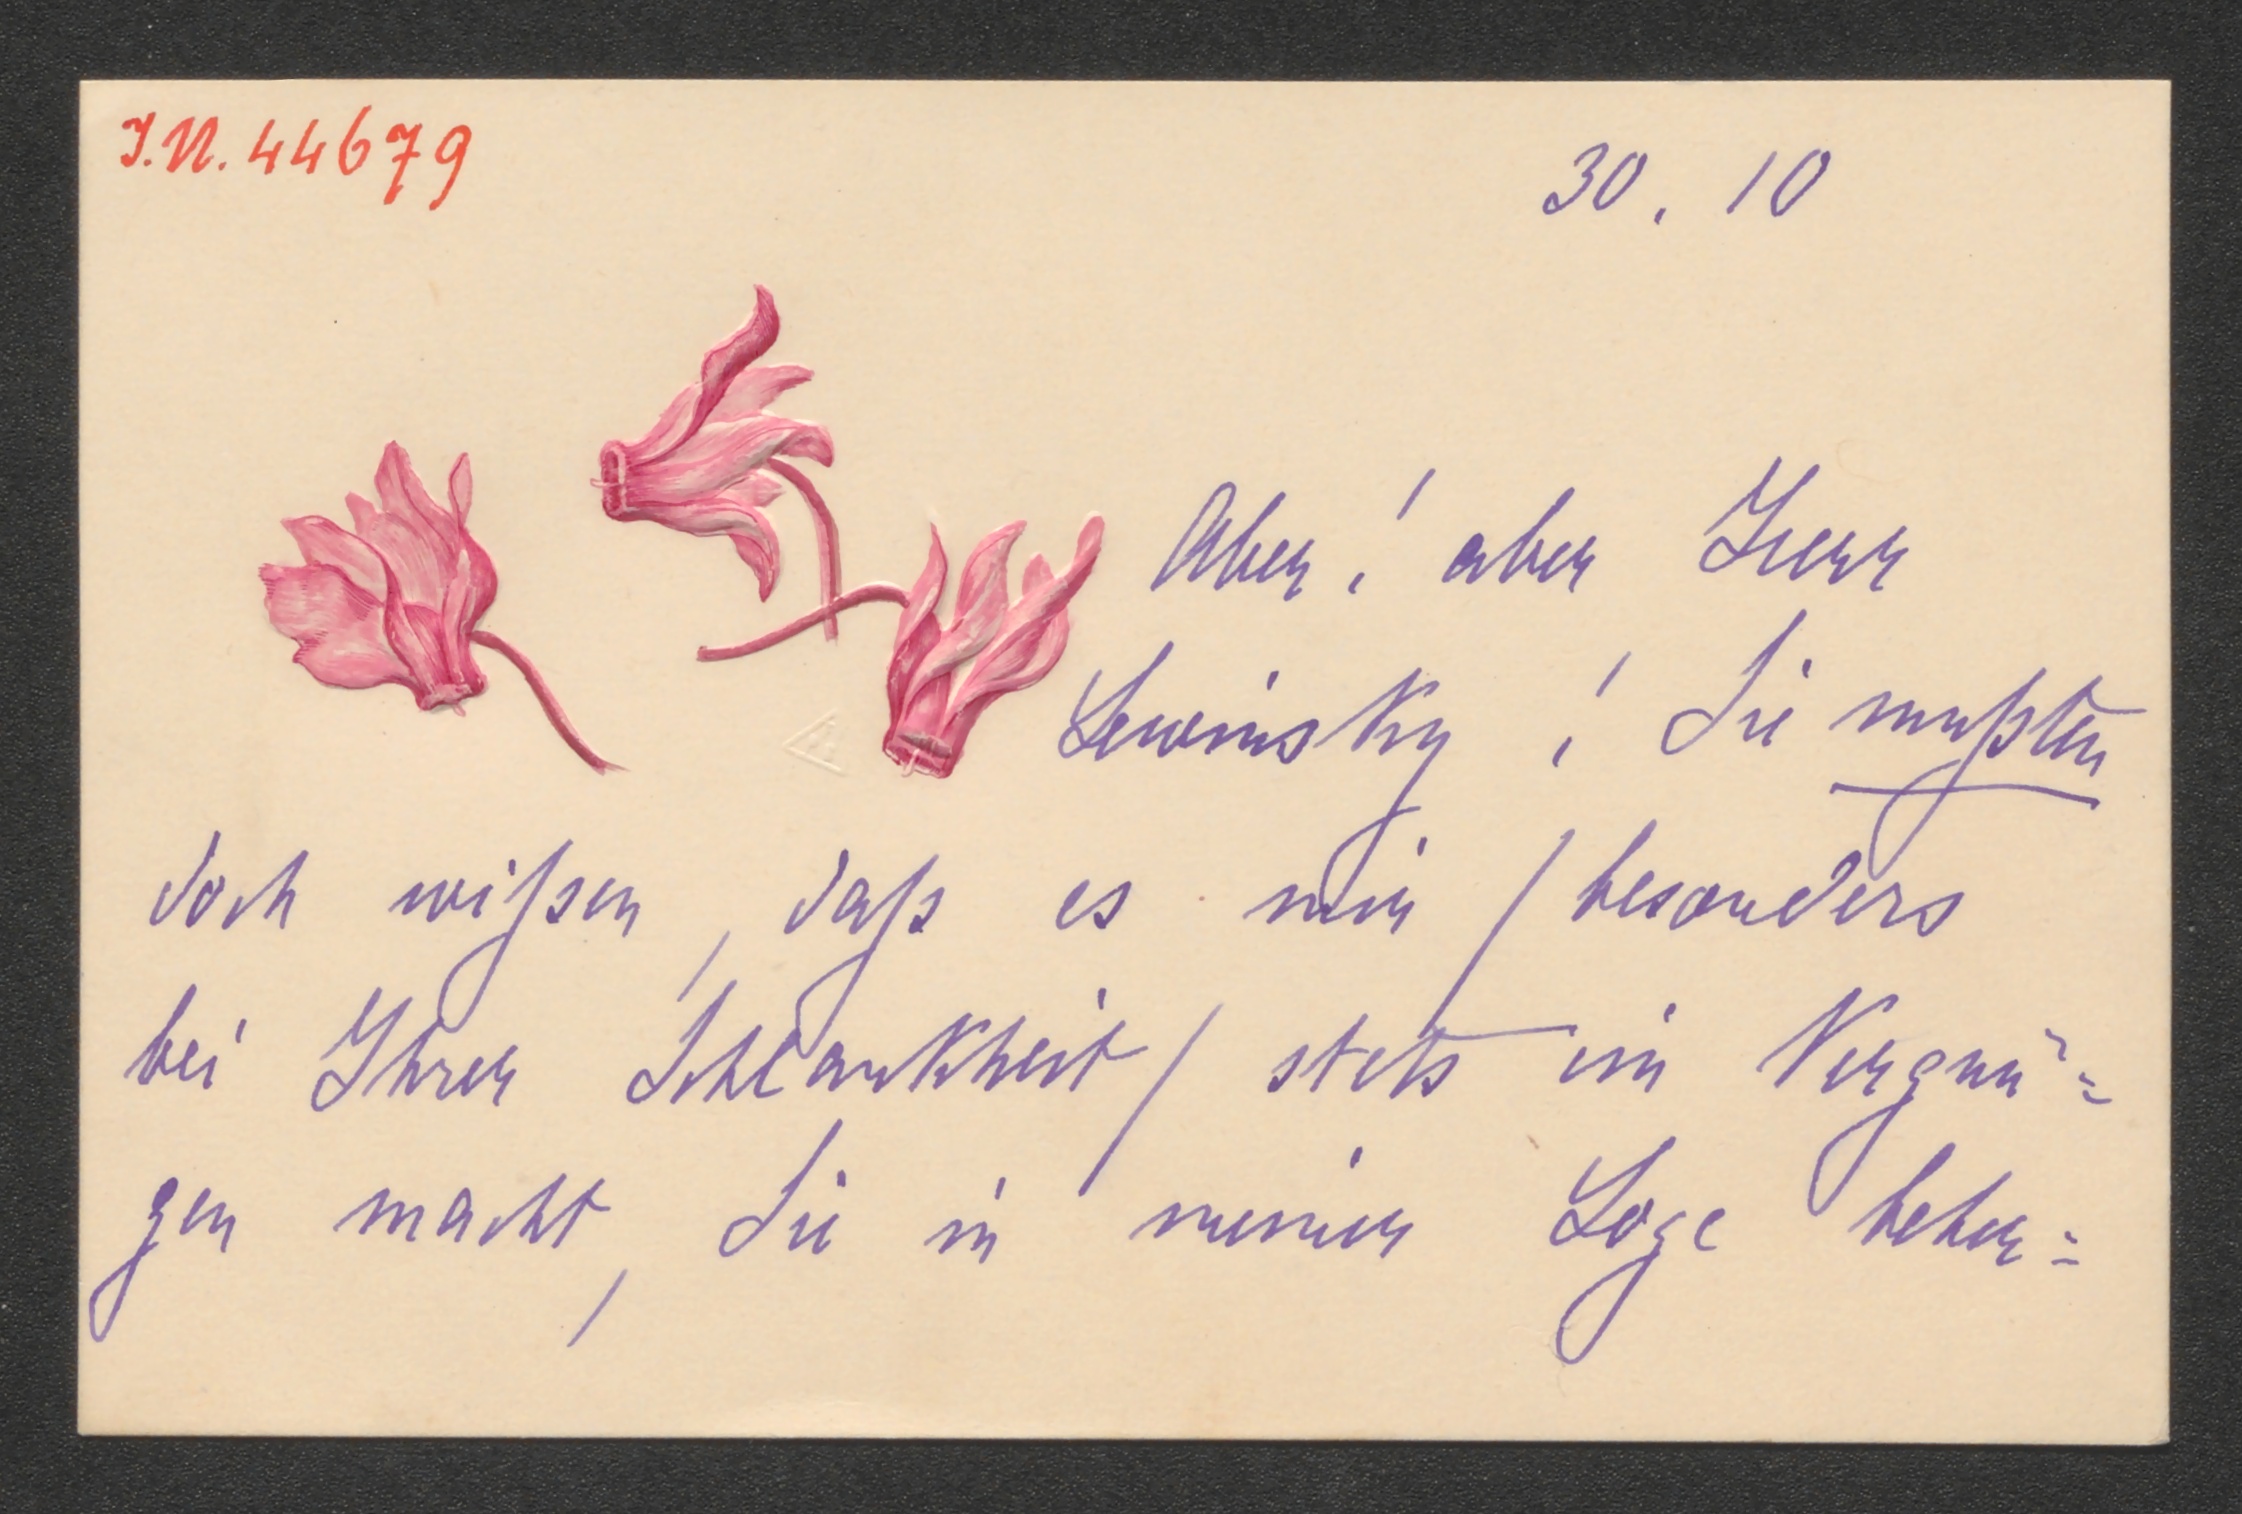 I.N. 44679
30. 10
Aber! aber Herr
Lewinsky! Sie mußten
doch wißen, daß es mir / besonders
bei Ihrer Schlankheit / stets ein Vergnü=
gen macht, Sie in meiner Loge beher=